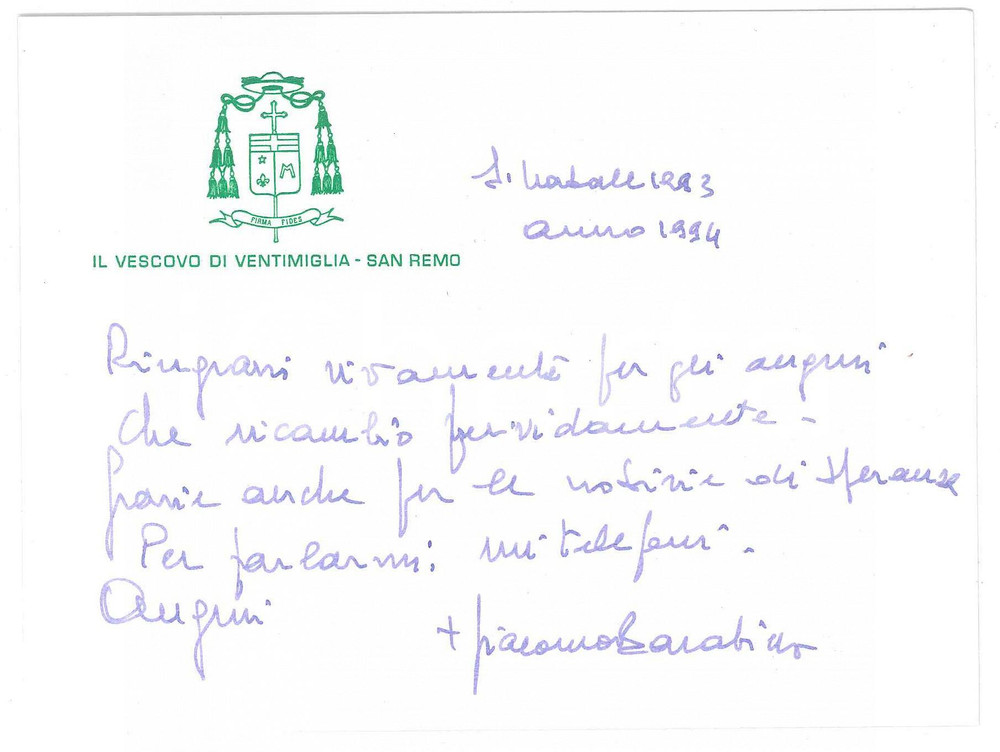 FIRMA FIDES
IL VESCOVO DI VENTIMIGLIA - SAN REMO
S. Natale 1993
anno 1994
Ringrazio vivamente per gli auguri
che ricambio fervidamente -
Grazie anche per le notizie di speranza
Per parlarmi, mi telefoni.
Auguri
+ Giacomo Barabino